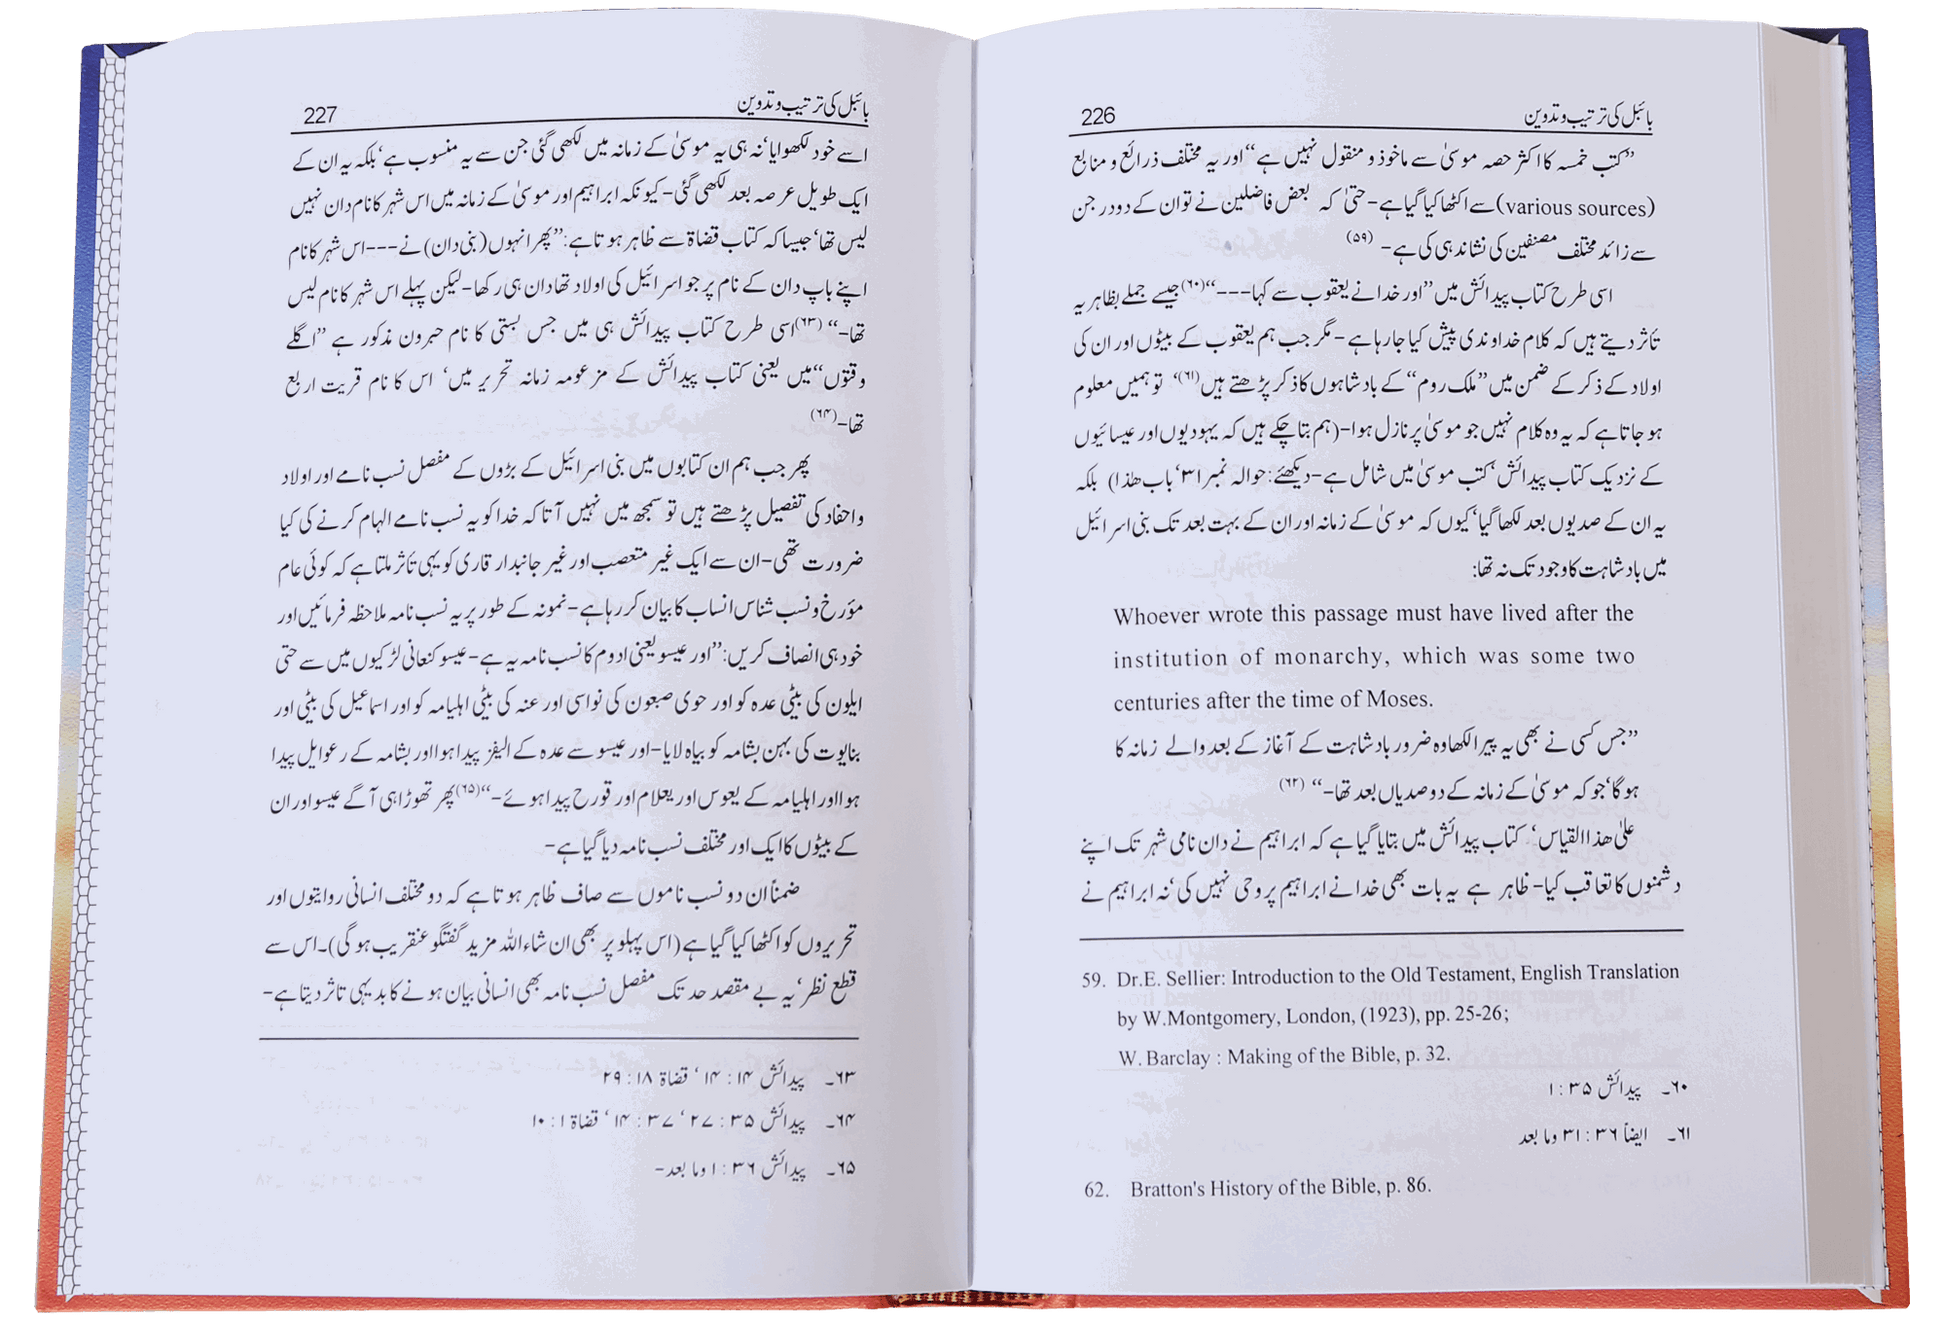 بائبل کی ترتیب و تدوین 226
”کتب خمسہ کا اکثر حصہ موسیٰ سے ماخوذ و منقول نہیں ہے“ اور یہ مختلف ذرائع و منابع
(various sources) سے اکٹھا کیا گیا ہے- حتیٰ کہ بعض فاضلین نے تو ان کے دو درجن
سے زائد مختلف مصنفین کی نشاندہی کی ہے- (۵۹)
اسی طرح کتاب پیدائش میں ”اور خدا نے یعقوب سے کہا---“(۶۰) جیسے جملے بظاہر یہ
تأثر دیتے ہیں کہ کلام خداوندی پیش کیا جا رہا ہے- مگر جب ہم یعقوب کے بیٹوں اور ان کی
اولاد کے ذکر کے ضمن میں ”ملک روم“ کے بادشاہوں کا ذکر پڑھتے ہیں(۶۱)‘ تو ہمیں معلوم
ہو جاتا ہے کہ یہ وہ کلام نہیں جو موسیٰ پر نازل ہوا-(ہم بتا چکے ہیں کہ یہودیوں اور عیسائیوں
کے نزدیک کتاب پیدائش‘ کتب موسیٰ میں شامل ہے- دیکھئے: حوالہ نمبر ۳۱‘ باب ھٰذا) بلکہ
یہ ان کے صدیوں بعد لکھا گیا‘ کیوں کہ موسیٰ کے زمانہ اور ان کے بہت بعد تک بنی اسرائیل
میں بادشاہت کا وجود تک نہ تھا:
Whoever wrote this passage must have lived after the
institution of monarchy, which was some two
centuries after the time of Moses.
”جس کسی نے بھی یہ پیرا لکھا وہ ضرور بادشاہت کے آغاز کے بعد والے زمانہ کا
ہو گا‘ جو کہ موسیٰ کے زمانہ کے دو صدیاں بعد تھا-“ (۶۲)
علیٰ ھذا القیاس‘ کتاب پیدائش میں بتایا گیا ہے کہ ابراہیم نے دان نامی شہر تک اپنے
دشمنوں کا تعاقب کیا- ظاہر ہے یہ بات بھی خدا نے ابراہیم پر وحی نہیں کی‘ نہ ابراہیم نے
59. Dr.E. Sellier: Introduction to the Old Testament, English Translation
by W.Montgomery, London, (1923), pp. 25-26;
W. Barclay : Making of the Bible, p. 32.
۶۰۔ پیدائش ۳۵ : ۱
۶۱۔ ایضاً ۳۶ : ۳۱ وما بعد
62. Bratton's History of the Bible, p. 86.
بائبل کی ترتیب و تدوین 227
اسے خود لکھوایا‘ نہ ہی یہ موسیٰ کے زمانہ میں لکھی گئی جن سے یہ منسوب ہے‘ بلکہ یہ ان کے
ایک طویل عرصہ بعد لکھی گئی- کیونکہ ابراہیم اور موسیٰ کے زمانہ میں اس شہر کا نام دان نہیں
لیس تھا‘ جیسا کہ کتاب قضاۃ سے ظاہر ہوتا ہے: ”پھر انہوں (بنی دان) نے --- اس شہر کا نام
اپنے باپ دان کے نام پر جو اسرائیل کی اولاد تھا دان ہی رکھا- لیکن پہلے اس شہر کا نام لیس
تھا-“ (۶۳) اسی طرح کتاب پیدائش ہی میں جس بستی کا نام حبرون مذکور ہے ”اگلے
وقتوں“ میں یعنی کتاب پیدائش کے مزعومہ زمانہ تحریر میں‘ اس کا نام قریت اربع
تھا- (۶۴)
پھر جب ہم ان کتابوں میں بنی اسرائیل کے بڑوں کے مفصل نسب نامے اور اولاد
و احفاد کی تفصیل پڑھتے ہیں تو سمجھ میں نہیں آتا کہ خدا کو یہ نسب نامے الہام کرنے کی کیا
ضرورت تھی- ان سے ایک غیر متعصب اور غیر جانبدار قاری کو یہی تأثر ملتا ہے کہ کوئی عام
مؤرخ و نسب شناس انساب کا بیان کر رہا ہے- نمونہ کے طور پر یہ نسب نامہ ملاحظہ فرمائیں اور
خود ہی انصاف کریں: ”اور عیسو یعنی ادوم کا نسب نامہ یہ ہے- عیسو کنعانی لڑکیوں میں سے حتی
ایلون کی بیٹی عدہ کو اور حوی صبعون کی نواسی اور عنہ کی بیٹی اہلیامہ کو اور اسماعیل کی بیٹی اور
بنایوت کی بہن بشامہ کو بیاہ لایا- اور عیسو سے عدہ کے الیفز پیدا ہوا اور بشامہ کے رعوایل پیدا
ہوا اور اہلیامہ کے یعوس اور یعلام اور قورح پیدا ہوئے-“(۶۵) پھر تھوڑا ہی آگے عیسو اور ان
کے بیٹوں کا ایک اور مختلف نسب نامہ دیا گیا ہے-
ضمناً ان دو نسب ناموں سے صاف ظاہر ہوتا ہے کہ دو مختلف انسانی روایتوں اور
تحریروں کو اکٹھا کیا گیا ہے (اس پہلو پر بھی ان شاء اللہ مزید گفتگو عنقریب ہو گی)۔ اس سے
قطع نظر‘ یہ بے مقصد حد تک مفصل نسب نامہ بھی انسانی بیان ہونے کا بدیہی تاثر دیتا ہے-
۶۳۔ پیدائش ۱۴ : ۱۴‘ قضاۃ ۱۸ : ۲۹
۶۴۔ پیدائش ۳۵ : ۲۷‘ ۳۷ : ۱۴‘ قضاۃ ۱ : ۱۰
۶۵۔ پیدائش ۳۶ : ۱ وما بعد-